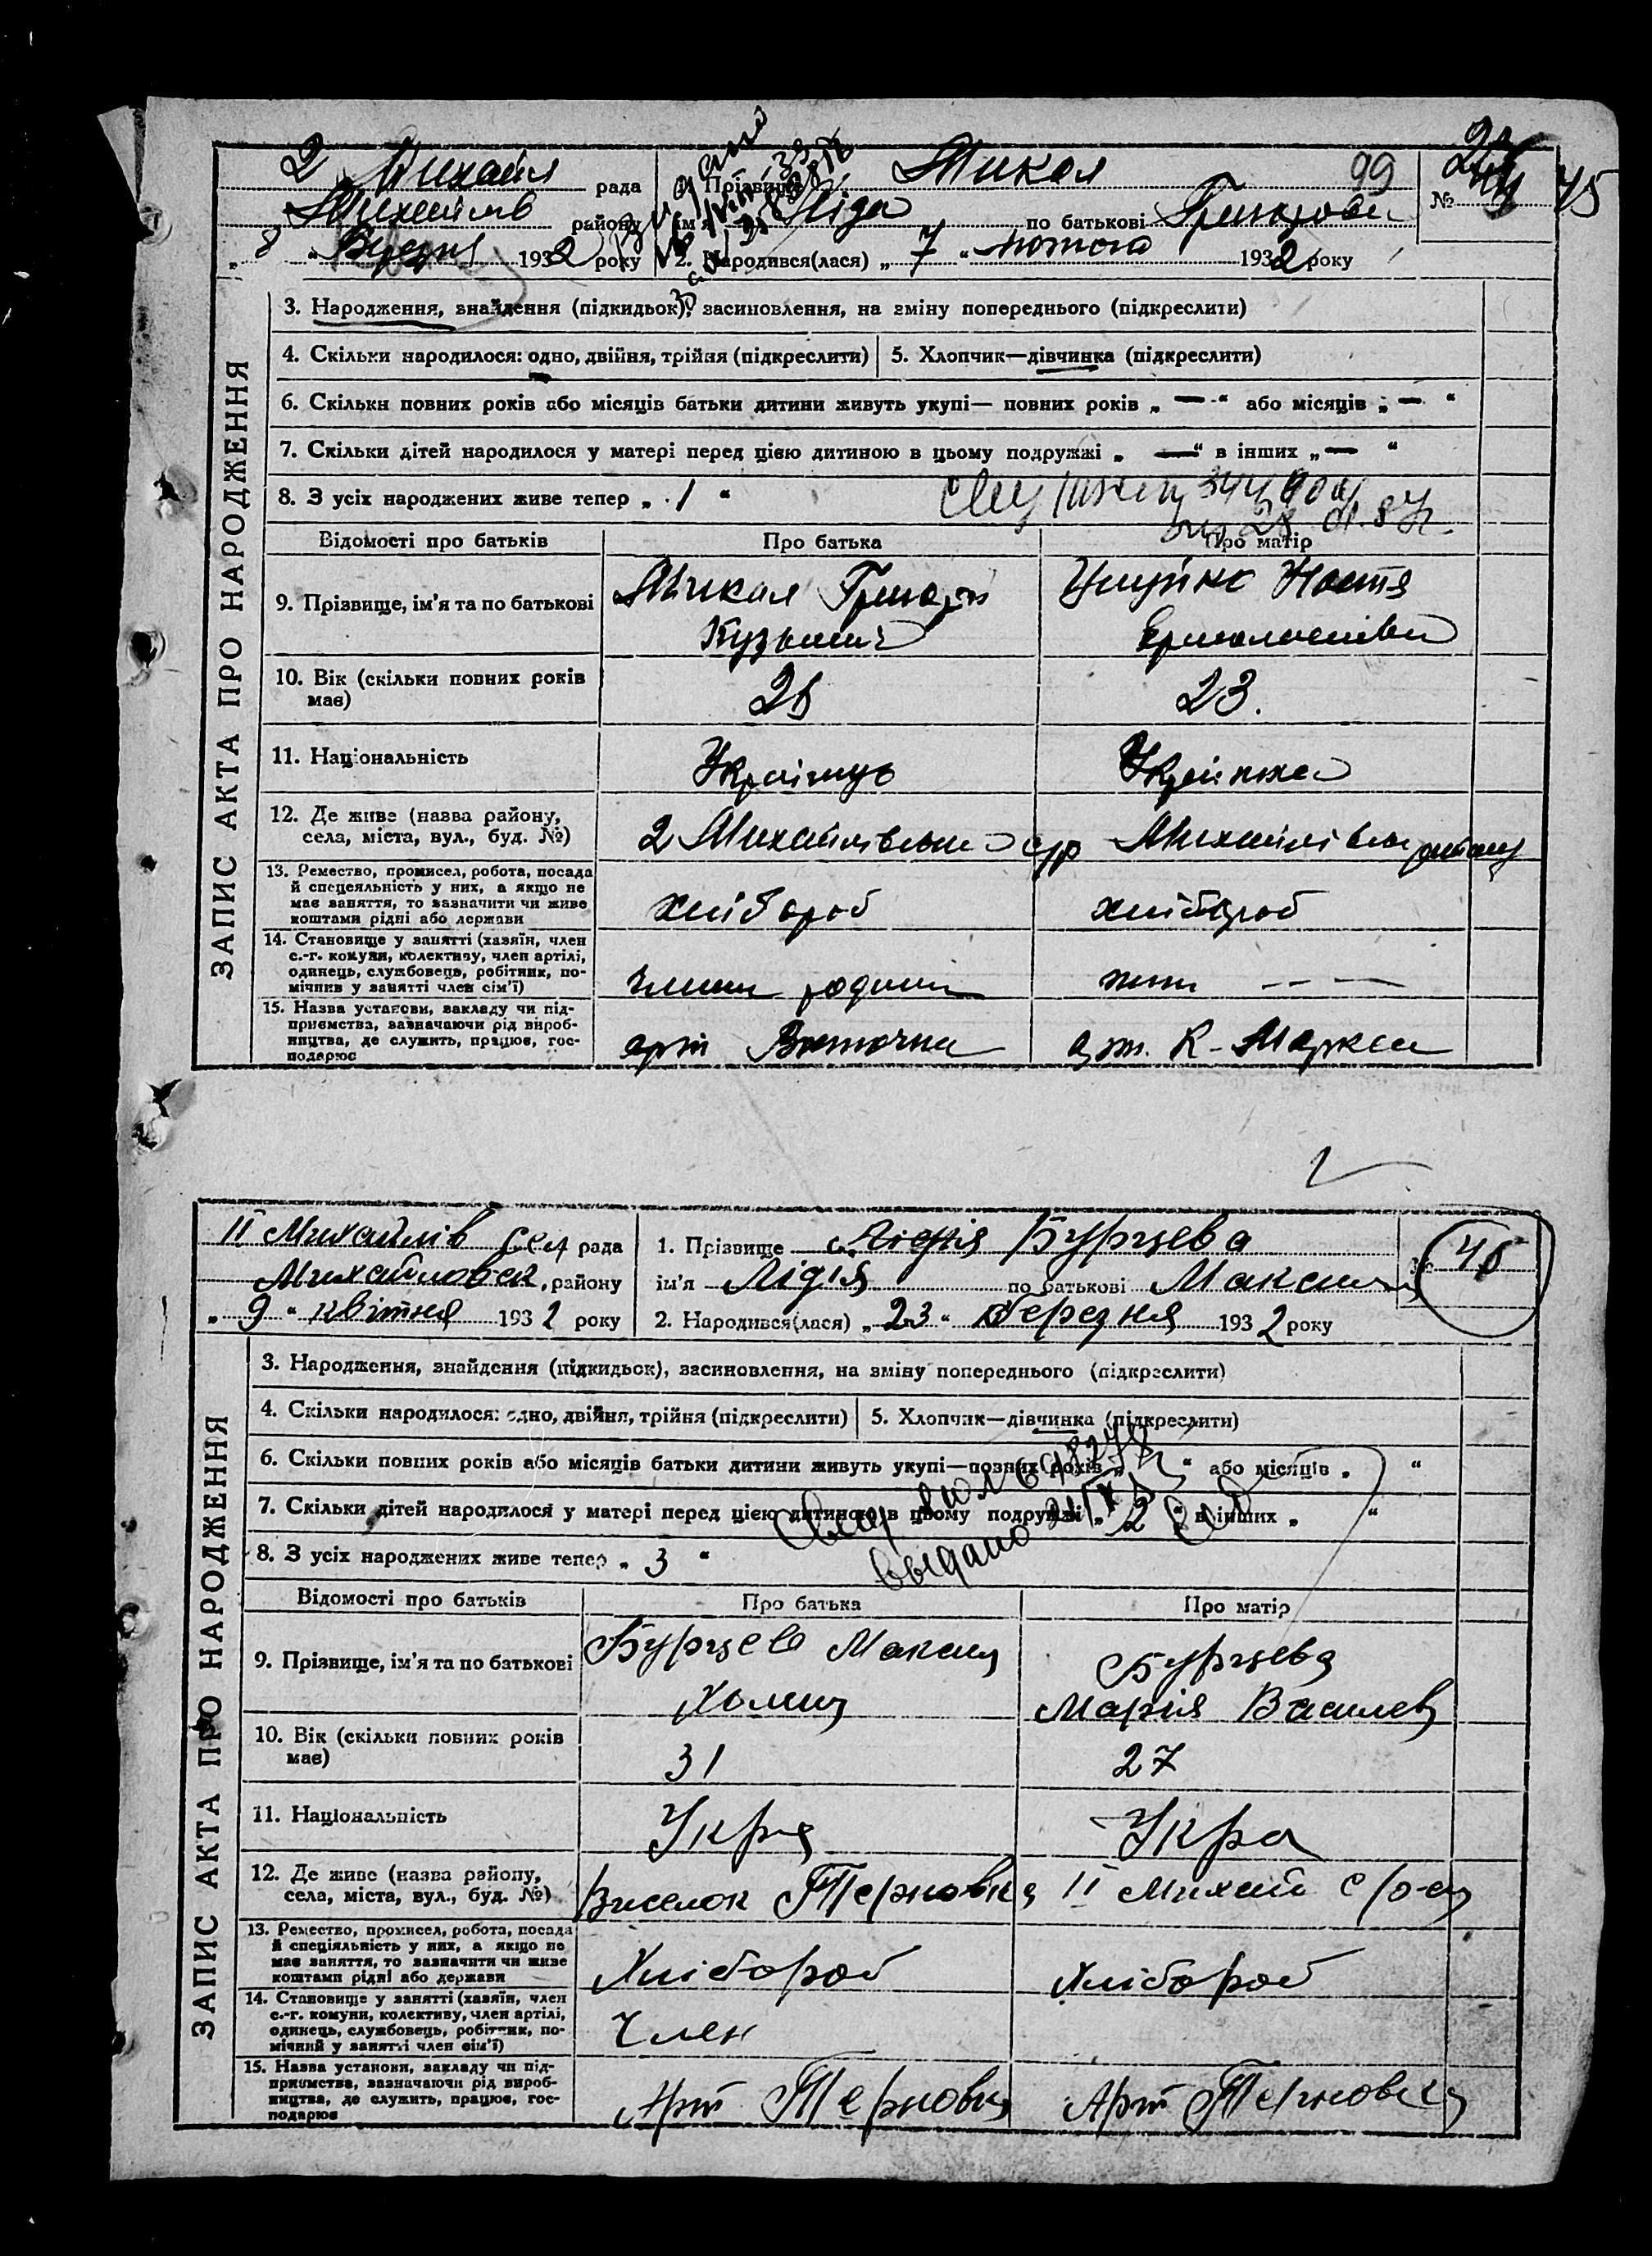 2 Михайл рада
1. Прізвище Микал
99
№
45
Михайлів району
ім'я Ліда по батькові Григорови
" 8 " 1932 року
2. Народився(лася) „ 7 “ лютого 1932 року
ЗАПИС АКТА ПРО НАРОДЖЕННЯ
3. Народження, знайдення (підкидьок), засиновлення, на зміну попереднього (підкреслити)
4. Скільки народилося: одно, двійня, трійня (підкреслити)
5. Хлопчик—дівчинка (підкреслити)
6. Скільки повних років або місяців батьки дитини живуть укупі— повних років „ — “ або місяців „ — “
7. Скільки дітей народилося у матері перед цією дитиною в цьому подружжі „ — “ в інших „ — “
8. З усіх народжених живе тепер „ 1 “
Відомості про батьків
Про батька
Про матір
9. Прізвище, ім'я та по батькові
Микал Григорій
Кузьмич
Настя
10. Вік (скільки повних років має)
23.
11. Національність
Українець
Українка
12. Де живе (назва району, села, міста, вул., буд. №)
2 Михайлівськ с/р Михайлівськ району
13. Ремество, промисел, робота, посада
й спецеяльність у них, а якщо не
має заняття, то зазначити чи живе
коштами рідні або держави
хлібороб
хлібороб
14. Становище у занятті (хазяїн, член
с.-г. комуни, колективу, член артілі,
одинець, службовець, робітник, по-
мічник у занятті член сім'ї)
родини
15. Назва установи, закладу чи під-
приємства, зазначаючи рід вироб-
ництва, де служить, працює, гос-
подарює
арт
арт. К-Маркса
ІІ Михайлів сел рада
1. Прізвище Бурцева
№ 45
Михайловск. району
ім'я Лідія по батькові Максим
„ 9 “ квітня 1932 року
2. Народився(лася) „ 23 “ березня 1932 року
ЗАПИС АКТА ПРО НАРОДЖЕННЯ
3. Народження, знайдення (підкидьок), засиновлення, на зміну попереднього (підкреслити)
4. Скільки народилося: одно, двійня, трійня (підкреслити)
5. Хлопчик—дівчинка (підкреслити)
6. Скільки повних років або місяців батьки дитини живуть укупі—повних років „ “ або місяців „ “
7. Скільки дітей народилося у матері перед цією дитиною в цьому подружжі „ 2 “ в інших „ “
выдано
8. З усіх народжених живе тепер „ 3 “
Відомості про батьків
Про батька
Про матір
9. Прізвище, ім'я та по батькові
Бурцев Максим
Бурцева
Марія Василев
10. Вік (скільки повних років має)
31
27
11. Національність
Укра
Укра
12. Де живе (назва району, села, міста, вул., буд. №)
Виселок Терновка ІІ Михай с/р-а
13. Ремество, промисел, робота, посада
й спеціяльність у них, а якщо не
має заняття, то зазначити чи живе
коштами рідні або держави
Хлібороб
Хлібороб
14. Становище у занятті (хазяїн, член
с.-г. комуни, колективу, член артілі,
одинець, службовець, робітник, по-
мічний у занятті член сім'ї)
Член
15. Назва установи, закладу чи під-
приємства, зазначаючи рід вироб-
ництва, де служить, працює, гос-
подарює
Арт Терновка
Арт Терновка